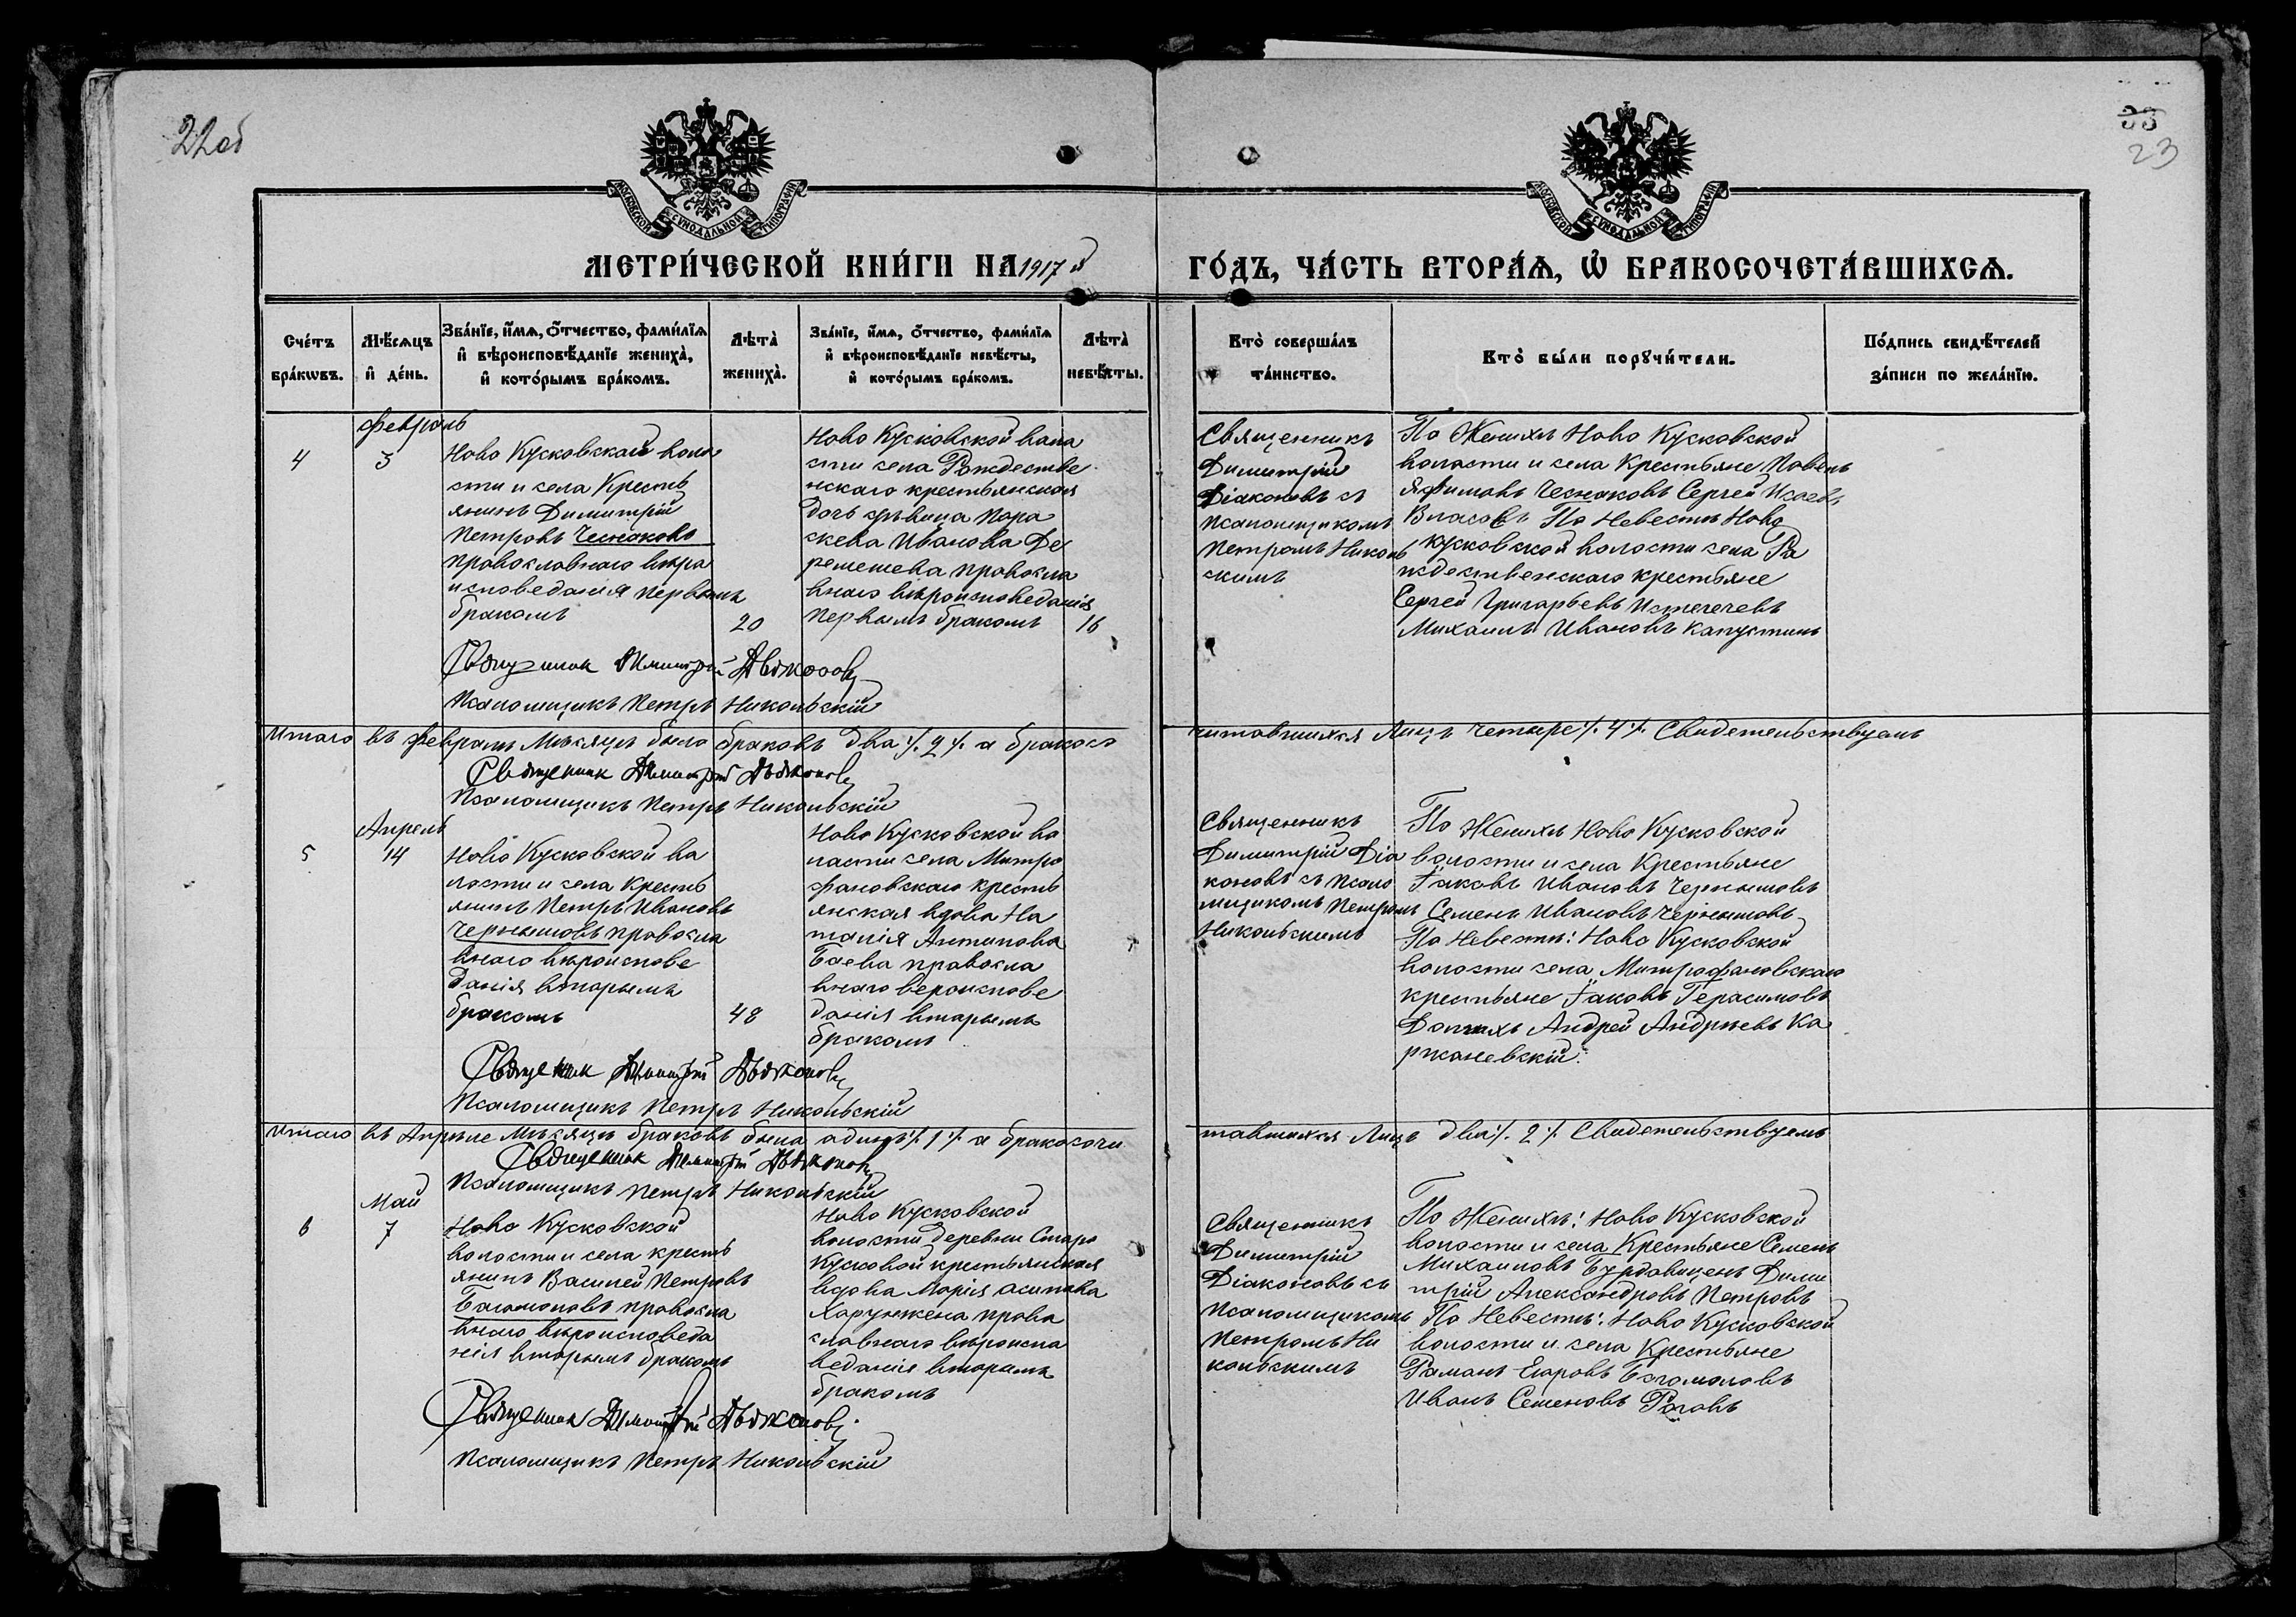 22об
33
23
МОСКОВСКОЙ СѴНОДАЛЬНОЙ ТИПОГРАФІИ
МОСКОВСКОЙ СѴНОДАЛЬНОЙ ТИПОГРАФІИ
МЕТРИ́ЧЕСКОЙ КНИ́ГИ НА 1917 й
ГО́ДЪ, ЧА́СТЬ ВТОРА́Ѧ, Ѽ БРАКОСОЧЕТА́ВШИХСѦ.
Сче́тъ
бра́кѡвъ.
Мѣ́сѧцъ
и҆ де́нь.
Зва́нїе, и҆́мѧ, ѻ҆́тчество, фами́лїѧ
и҆ вѣроисповѣ́данїе жениха̀,
и҆ кото́рымъ бра́комъ.
Лѣта̀
жениха̀.
Зва́нїе, и҆́мѧ, ѻ҆́тчество, фами́лїѧ
и҆ вѣроисповѣ́данїе невѣ́сты,
и҆ кото́рымъ бра́комъ.
Лѣта̀
невѣ́сты.
Кто̀ соверша́лъ
та́инство.
Кто̀ бы́ли порꙋчи́тели.
По́дпись свидѣ́телей
за́писи по жела́нїю.
Февраль
4
3
Ново Кусковской воло
сти и села Кресть
янинъ Димитрій
Петровъ Чесноковъ
православнаго вѣро
исповеданія первымъ
бракомъ
20
Ново Кусковской вола
сти села Рождестве
нскаго крестьянская
дочь дѣвица Пора
скева Иванова Де
ремешева правосла
внаго вѣроисповеданія
первымъ бракомъ
16
Священникъ
Димитрій
Діаконовъ съ
псаломщикомъ
Петромъ Николь
скимъ
По Женихѣ Ново Кусковской
воласти и села Крестьяне Павелъ
Яфимовъ Чесноковъ Сергей Исаевъ
Власовъ По Невестѣ Ново
Кусковской воласти села Ра
ждественскаго крестьяне
Сергей Григорьевъ Истегечевъ
Михаилъ Ивановъ Капустинъ
Священник Димитрий Дьяконовъ
Псаломщикъ Петръ Никольскій
Итого въ Февралѣ Мѣсяцѣ было браковъ два ./. 2 ./. а бракосо
читавшихся Лицъ четыре ./. 4 ./. Свидетельствуемъ
Священник Димитрий Дьяконовъ
Псаломщикъ Петръ Никольскій
Апрель
5
14
Ново Кусковской во
лости и села Кресть
янинъ Петръ Ивановъ
Чернышовъ правосла
внаго вѣроиспове
данія вторымъ
бракомъ
48
Ново Кусковской во
ласти села Митро
фановскаго кресть
янская вдова На
талія Антипова
Баева правосла
внаго вероиспове
данія вторымъ
бракомъ
Священникъ
Димитрій Діа
коновъ съ псало
мщикомъ Петромъ
Никольскимъ
По Женихѣ Ново Кусковской
волости и села Крестьяне
Іаковъ Ивановъ Чернышовъ
Семенъ Ивановъ Чернышовъ
По Невестѣ: Ново Кусковской
волости села Митрофановскаго
крестьяне Іаковъ Герасимовъ
Долгихъ Андрей Андрѣевъ Ка
ржаневскій.
Священник Димитрий Дьяконовъ
Псаломщикъ Петръ Никольскій
Итого въ Апрѣле Мѣсяцѣ браковъ была адинъ ./. 1 ./. а бракосочи
тавшихся Лицъ два ./. 2 ./. Свидетельствуемъ
Священник Димитрий Дьяконовъ
Псаломщикъ Петръ Никольскій
Май
6
7
Ново Кусковской
волости и села кресть
янинъ Василей Петровъ
Багомоловъ правосла
внаго вѣроисповеда
нія вторымъ бракомъ
Ново Кусковской
волости деревни Старо
Кусковой крестьянская
вдова Марія Осипова
Харунжена право
славнаго вѣроиспо
веданія вторымъ
бракомъ
Священникъ
Димитрій
Діаконовъ съ
псаломщикомъ
Петромъ Ни
кольскимъ
По Женихѣ: Ново Кусковской
волости и села Крестьяне Семенъ
Михаиловъ Бурдавиценъ Дими
трій Александровъ Петровъ
По Невестѣ: Ново Кусковской
волости и села Крестьяне
Романъ Егоровъ Богомоловъ
Иванъ Семеновъ Роговъ
Священник Димитрий Дьяконовъ.
Псаломщикъ Петръ Никольскій